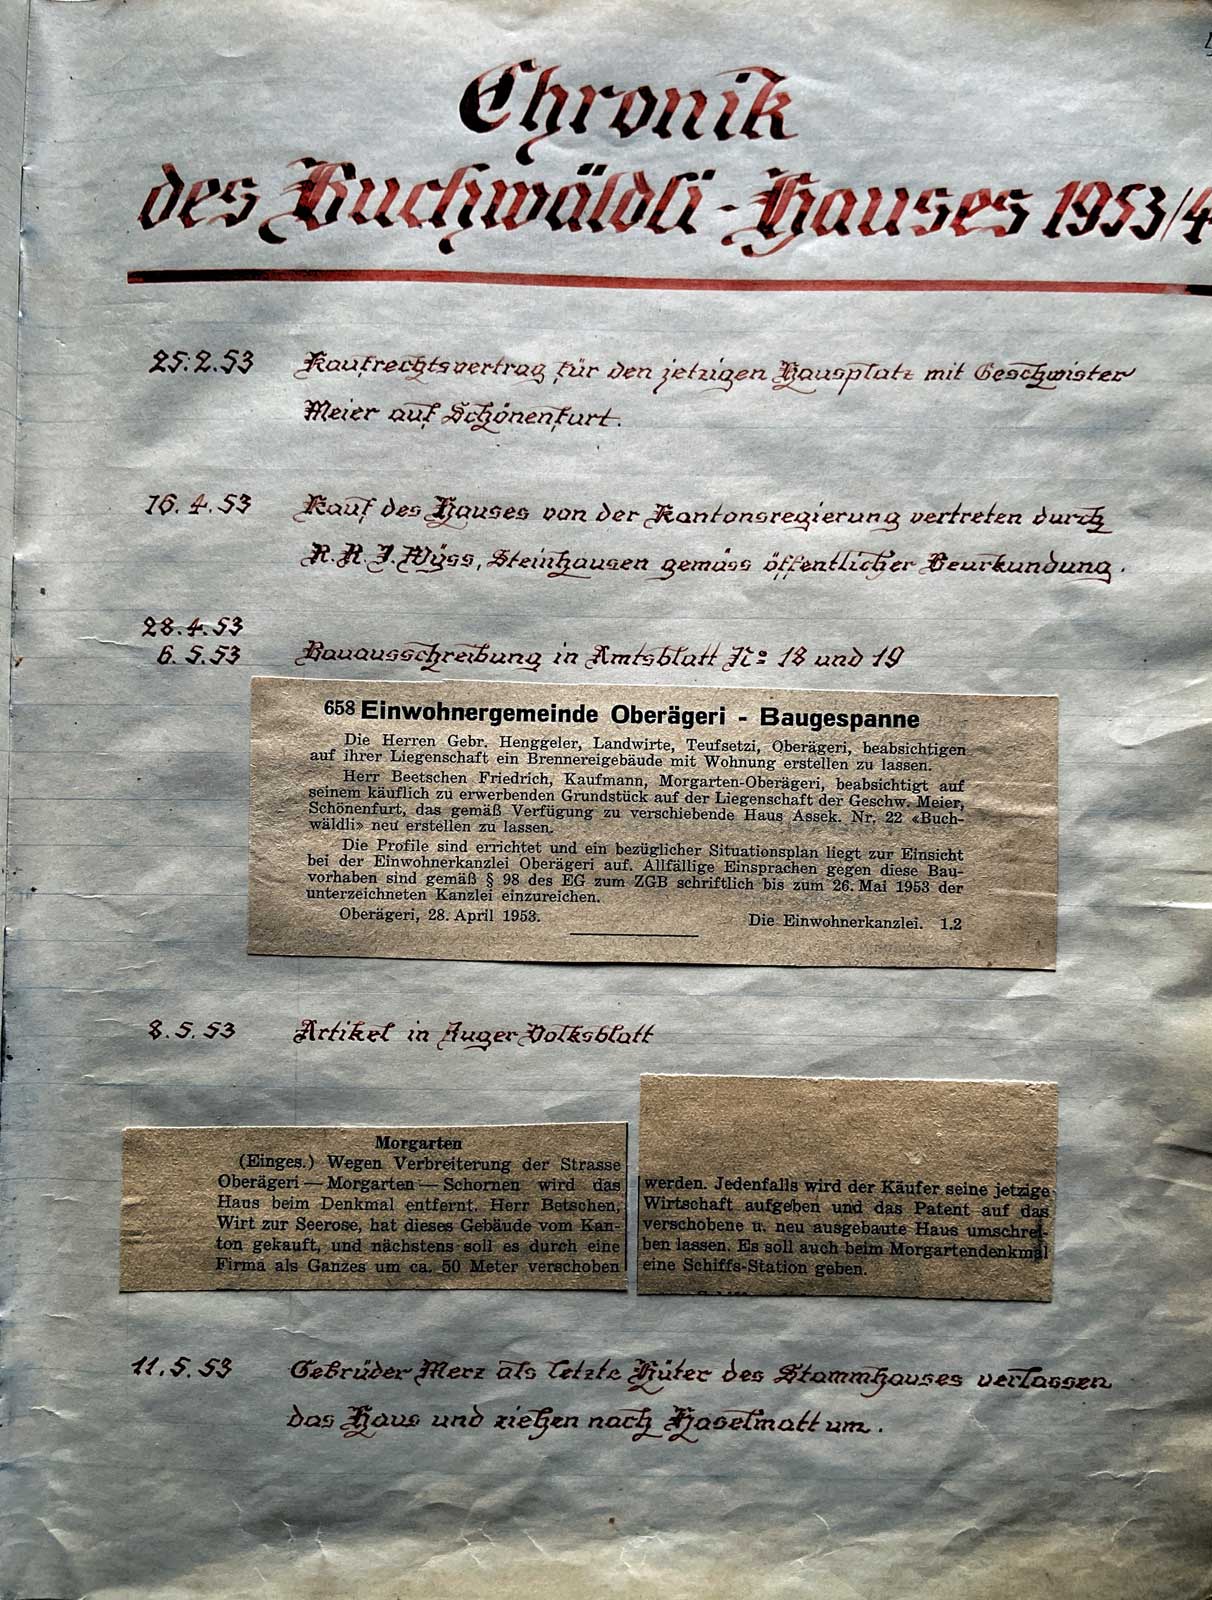 Chronik
des Buchwäldli-Hauses 1953/4
25.2.53 Kaufrechtsvertrag für den jetzigen Hausplatz mit Geschwister
Meier auf Schönenfurt.
16.4.53 Kauf des Hauses von der Kantonsregierung vertreten durch
R.R.J. Wyss, Steinhausen gemäss öffentlicher Beurkundung.
28.4.53
6.5.53 Bauausschreibung in Amtsblatt No 18 und 19
658 Einwohnergemeinde Oberägeri - Baugespanne
Die Herren Gebr. Henggeler, Landwirte, Teufsetzi, Oberägeri, beabsichtigen
auf ihrer Liegenschaft ein Brennereigebäude mit Wohnung erstellen zu lassen.
Herr Beetschen Friedrich, Kaufmann, Morgarten-Oberägeri, beabsichtigt auf
seinem käuflich zu erwerbenden Grundstück auf der Liegenschaft der Geschw. Meier,
Schönenfurt, das gemäß Verfügung zu verschiebende Haus Assek. Nr. 22 «Buch-
wäldli» neu erstellen zu lassen.
Die Profile sind errichtet und ein bezüglicher Situationsplan liegt zur Einsicht
bei der Einwohnerkanzlei Oberägeri auf. Allfällige Einsprachen gegen diese Bau-
vorhaben sind gemäß § 98 des EG zum ZGB schriftlich bis zum 26. Mai 1953 der
unterzeichneten Kanzlei einzureichen.
Oberägeri, 28. April 1953. Die Einwohnerkanzlei. 1.2
8.5.53 Artikel in Zuger Volksblatt
Morgarten
(Einges.) Wegen Verbreiterung der Strasse
Oberägeri — Morgarten — Schornen wird das
Haus beim Denkmal entfernt. Herr Betschen,
Wirt zur Seerose, hat dieses Gebäude vom Kan-
ton gekauft, und nächstens soll es durch eine
Firma als Ganzes um ca. 50 Meter verschoben
werden. Jedenfalls wird der Käufer seine jetzige
Wirtschaft aufgeben und das Patent auf das
verschobene u. neu ausgebaute Haus umschrei-
ben lassen. Es soll auch beim Morgartendenkmal
eine Schiffs-Station geben.
11.5.53 Gebrüder Merz als letzte Hüter des Stammhauses verlassen
das Haus und ziehen nach Haselmatt um.